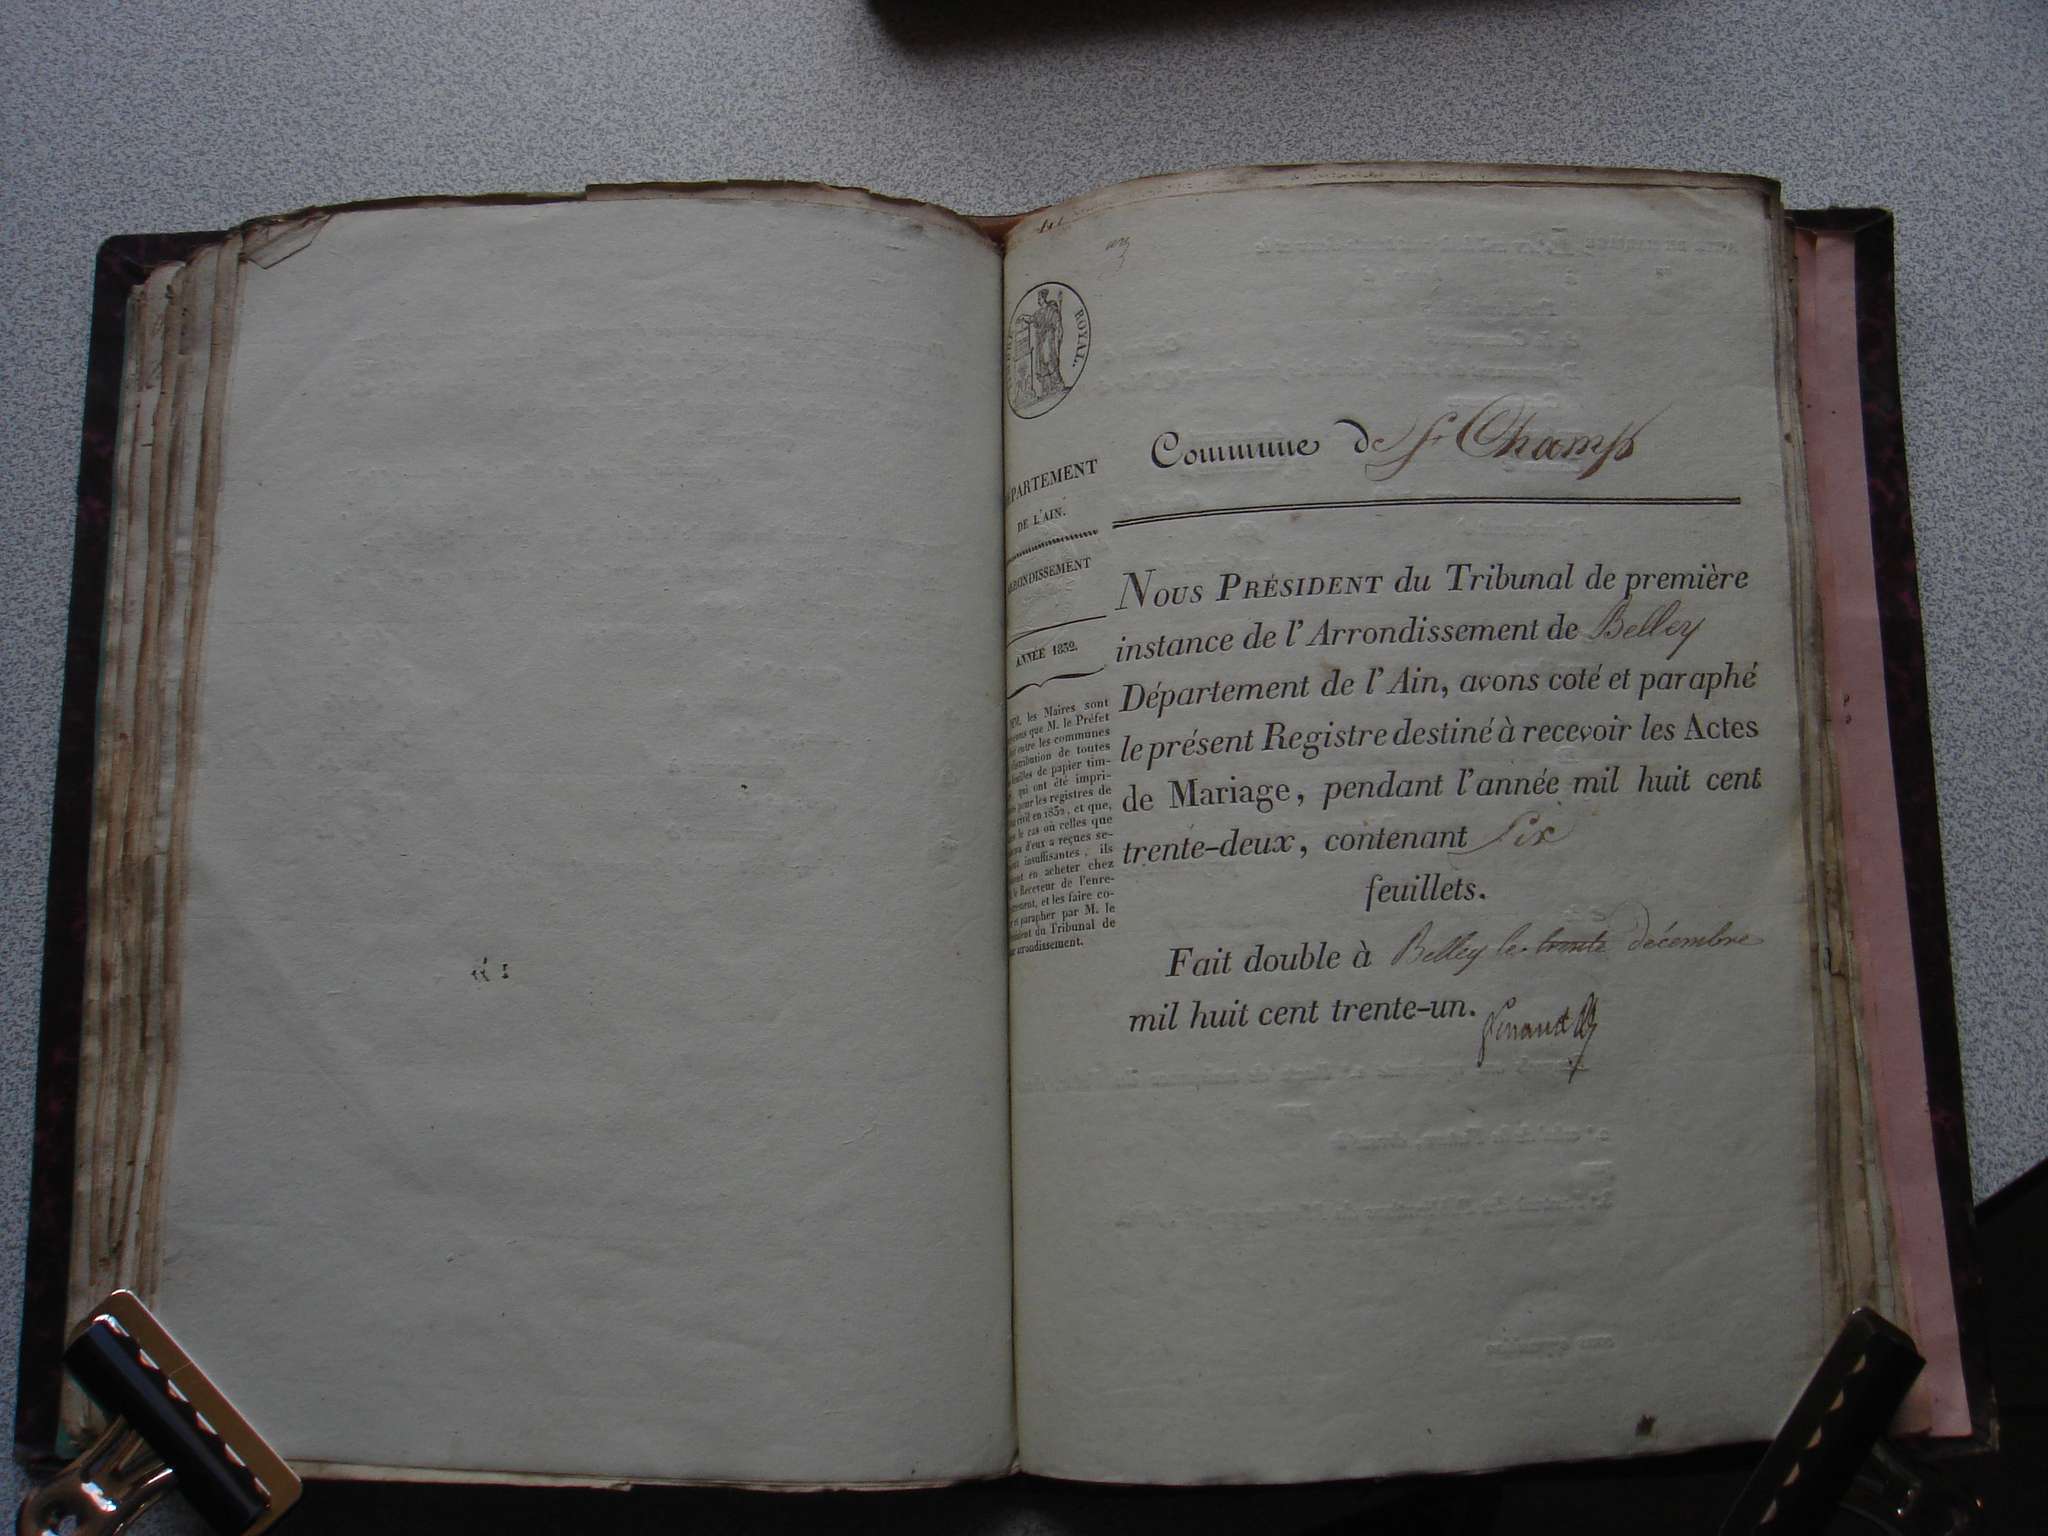 ROYAL.
Commune de St Champ
PARTEMENT
DE L'AIN.
RONDISSEMENT
ANNÉE 1832.
MM. les Maires sont
que M. le Préfet
entre les communes
distribution de toutes
feuilles de papier tim-
qui ont été impri-
pour les registres de
civil en 1832, et que,
le cas où celles que
d'eux a reçues se-
insuffisantes, ils
en acheter chez
le Receveur de l'enre-
et les faire co-
et parapher par M. le
du Tribunal de
arrondissement.
NOUS PRÉSIDENT du Tribunal de première
instance de l'Arrondissement de Belley
Département de l'Ain, avons coté et paraphé
le présent Registre destiné à recevoir les Actes
de Mariage, pendant l'année mil huit cent
trente-deux, contenant Six
feuillets.
Fait double à Belley le trente décembre
mil huit cent trente-un.